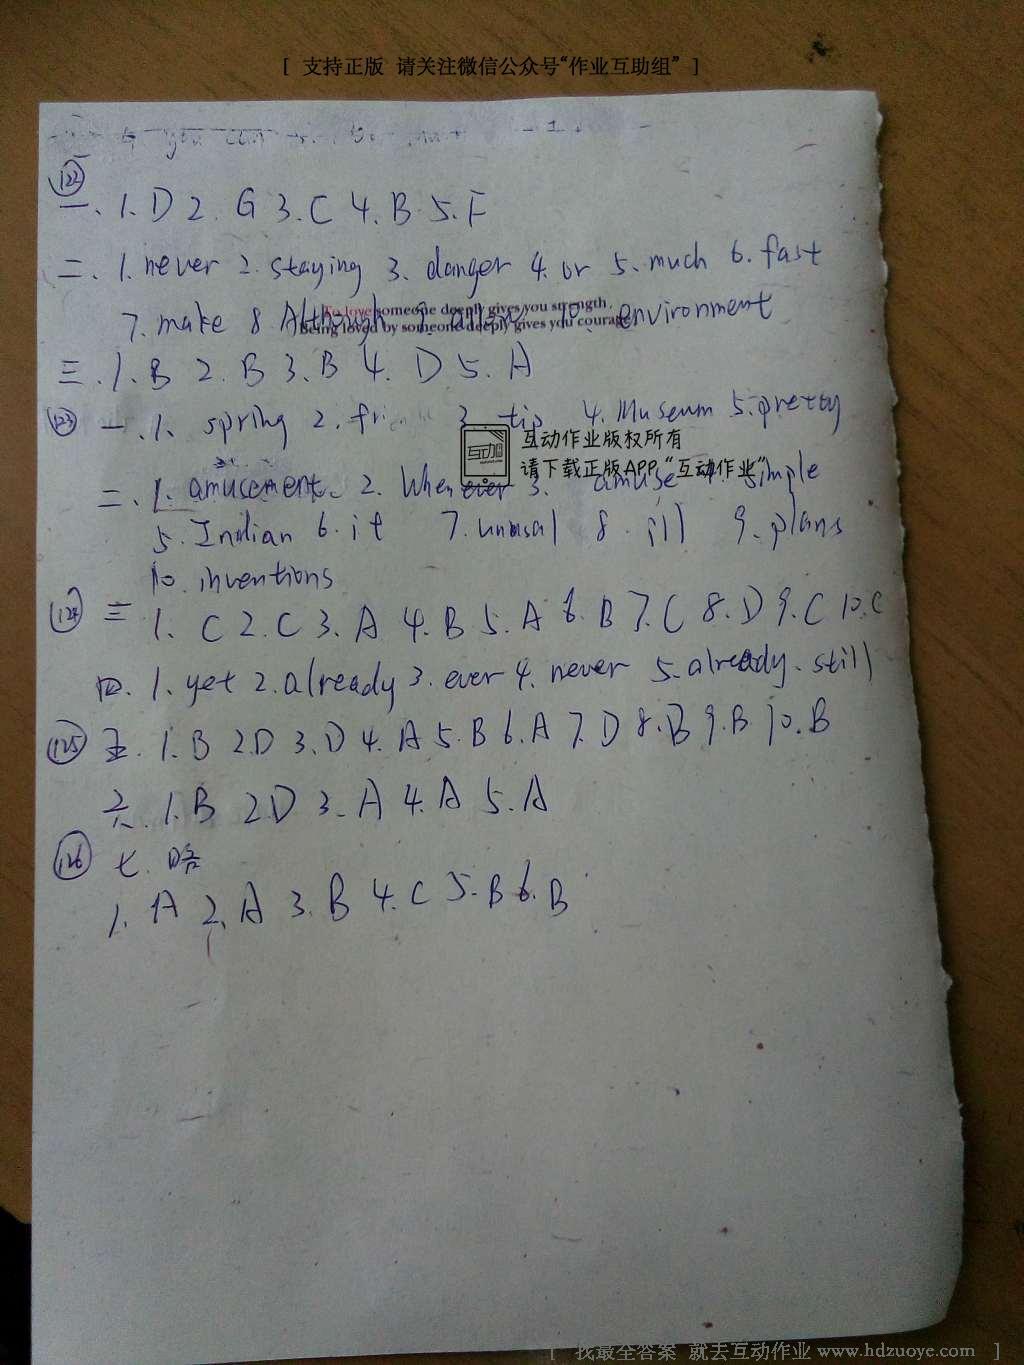 [ 支持正版 请关注微信公众号“作业互助组” ]
you can
122
一、1. D 2. G 3. C 4. B 5. F
二、1. never 2. staying 3. danger 4. or 5. much 6. fast
7. make 8 Although 9. 10. environment
To love someone deeply gives you strength.
Being loved by someone deeply gives you courage.
三. 1. B 2. B 3. B 4. D 5. A
123 一. 1. spring 2. 3. tip 4. Museum 5. pretty
互动作业版权所有
请下载正版APP“互动作业”
二. 1. amusement. 2. Whenever 3. amuse 4. simple
5. Indian 6. it 7. unusal 8. ill 9. plans
10. inventions
124 三 1. C 2. C 3. A 4. B 5. A 6. B 7. C 8. D 9. C 10. C
四. 1. yet 2. already 3. ever 4. never 5. already. still
125 五. 1. B 2. D 3. D 4. A 5. B 6. A 7. D 8. B 9. B 10. B
六. 1. B 2. D 3. A 4. A 5. A
126 七. 略
1. A 2. A 3. B 4. C 5. B 6. B
[ 找最全答案 就去互动作业 www.hdzuoye.com ]